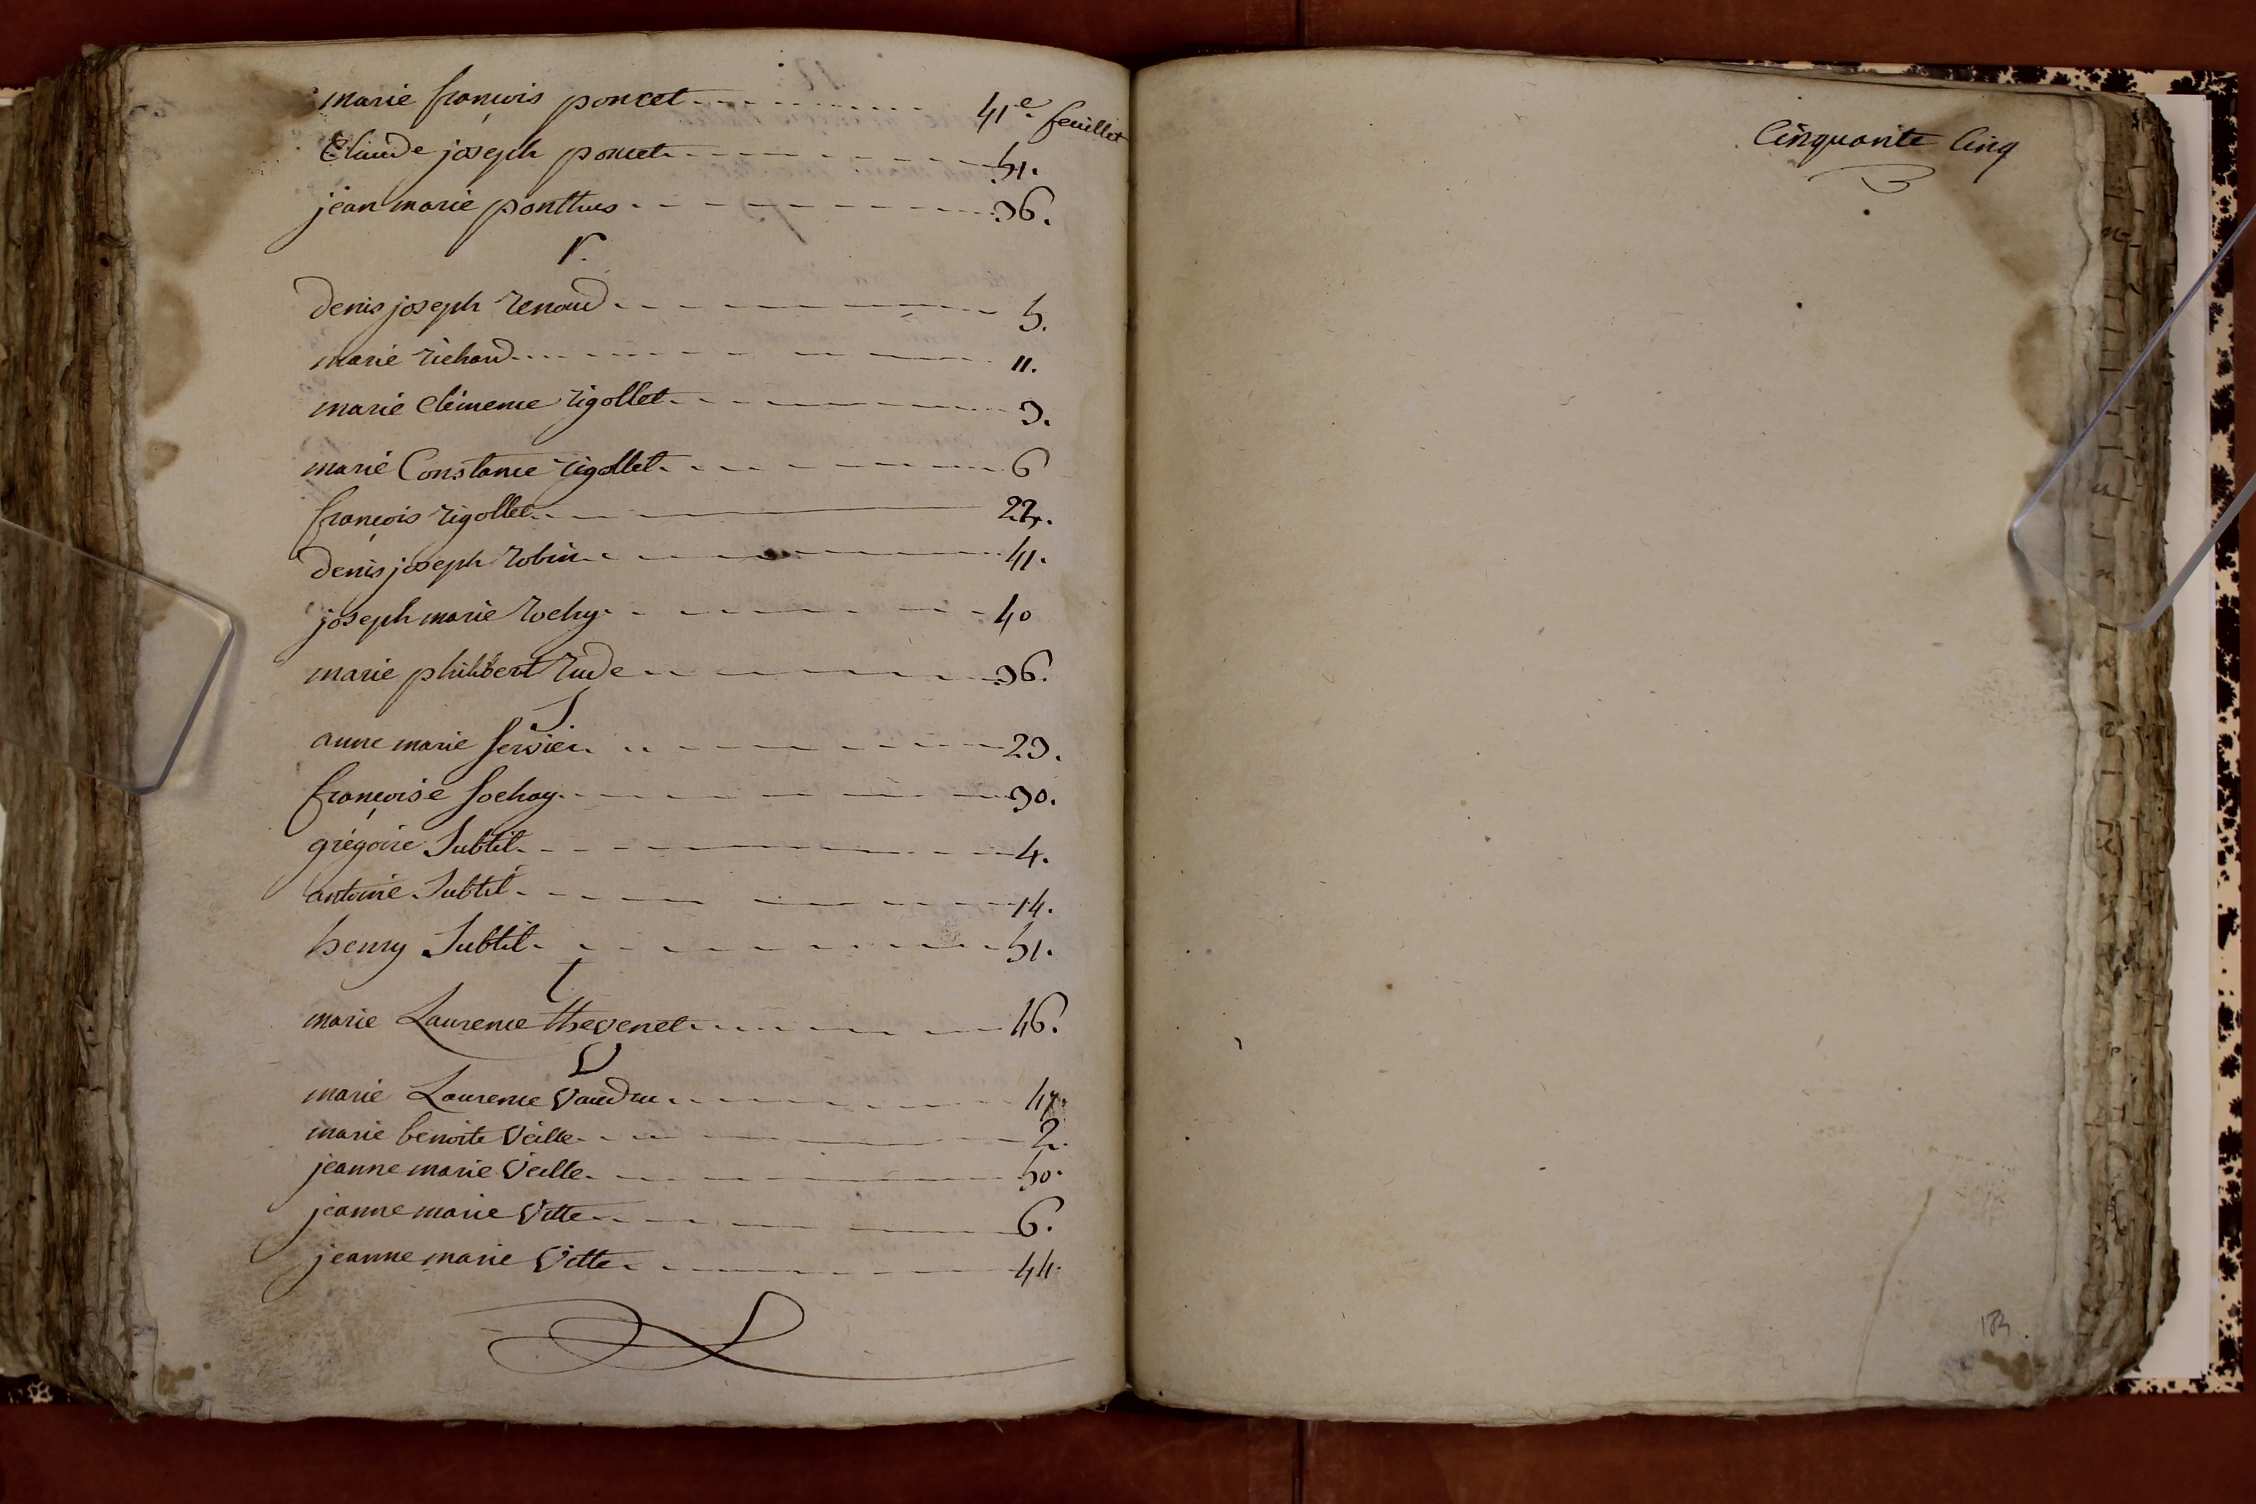 marie françois poncet 41e feuillet
Claude joseph poncet 51.
jean marie ponthus 36.
r.
denis joseph renaud 5.
marie richard 11.
marie Clémence rigollet 3.
marie Constance rigollet 6
françois rigollet 22.
denis joseph robin 41.
joseph marie rochy 40
marie philibert rude 36.
S.
anne marie servier 23.
françoise sochay 30.
grégoire Subtil 4.
antoine Subtil 14.
henry Subtil 51.
t
marie Laurence thevenet 46.
V
marie Laurence Vaudru 47.
marie benoite Veille 2.
jeanne marie Veille 50.
jeanne marie Vitte 6.
jeanne marie Vitte 44.
Cinquante Cinq